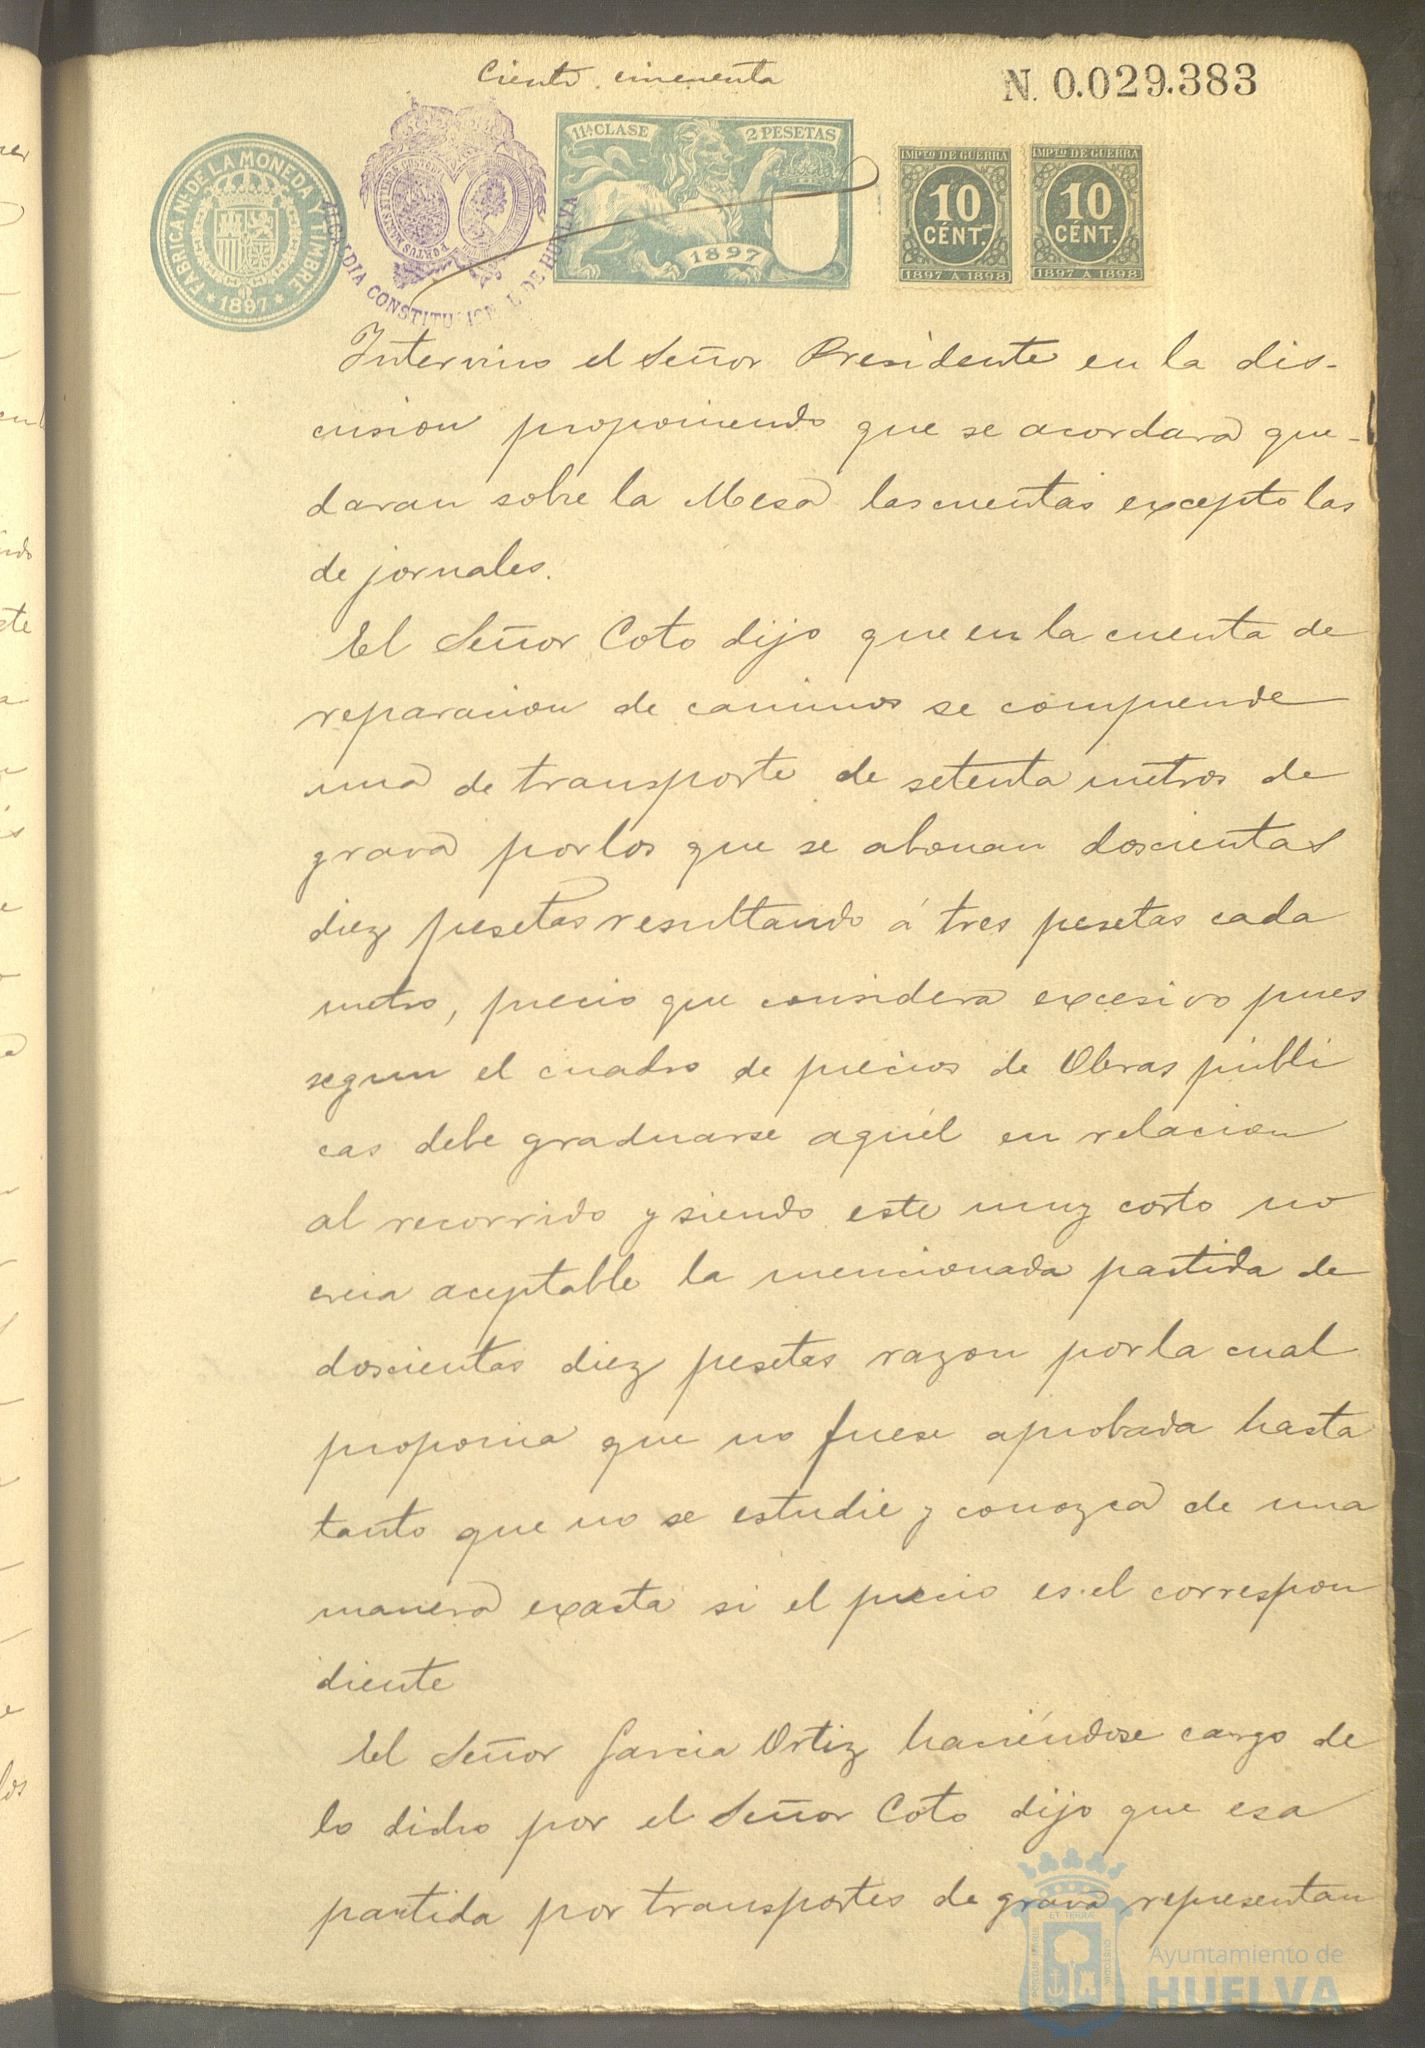 Ciento cincuenta
N. 0.029.383
FÁBRICA Nal DE LA MONEDA Y TIMBRE
* 1897 *
ALCALDIA CONSTITUCIONAL DE HUELVA
11ª CLASE
2 PESETAS
1897
IMPTO DE GUERRA
10
CÉNT.
1897 A 1898
IMPTO DE GUERRA
10
CÉNT.
1897 A 1898
Intervino el Señor Presidente en la dis-
cusion proponiendo que se acordara que-
daran sobre la Mesa las cuentas excepto las
de jornales.
El Señor Coto dijo que en la cuenta de
reparacion de caminos se comprende
una de transporte de setenta metros de
grava por los que se abonan doscientas
diez pesetas resultando á tres pesetas cada
metro, precio que considera excesivo pues
segun el cuadro de precios de Obras públi
cas debe graduarse aquél en relacion
al recorrido y siendo este muy corto no
creia aceptable la mencionada partida de
doscientas diez pesetas razon por la cual
proponia que no fuese aprobada hasta
tanto que no se estudie y conozca de una
manera exacta si el precio es el correspon
diente
El Señor Garcia Ortiz haciéndose cargo de
lo dicho por el Señor Coto dijo que esa
partida por transportes de grava representan
Ayuntamiento de
HUELVA